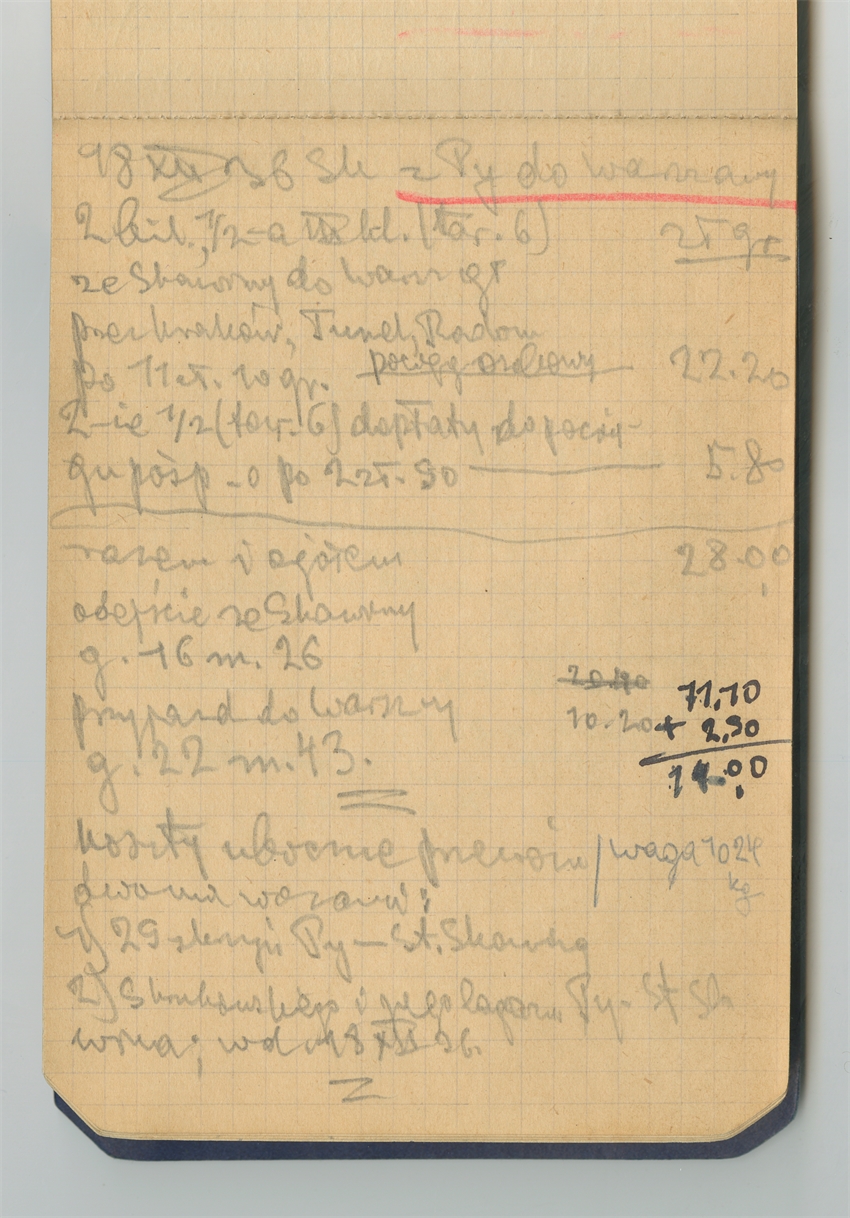 18 XII 36 Sk z Py do Warszawy
2 bil. 1/2-a III kl. (tar. 6) zł gr
ze Skawiny do Warsz gł
przez Kraków, Tunel, Radom
po 11 zł. 10 gr. pociąg osobowy 22.20
2-ie 1/2 (tar. 6) dopłaty do pocią-
gu pośp-o po 2 zł. 90 5.80
razem i ogółem 28.00
odejście ze Skawiny
g. 16 m. 26
przyjazd do Warszawy
g. 22 m. 43.
10.20
11,10
+ 2,90
14.00
koszty uboczne przewozu / waga 1024 kg
dwoma wozami:
1) 29 skrzyń Py — St. Skawina
2) i jego bagażu Py - St Ska
wina; w d. 18 XII 36.